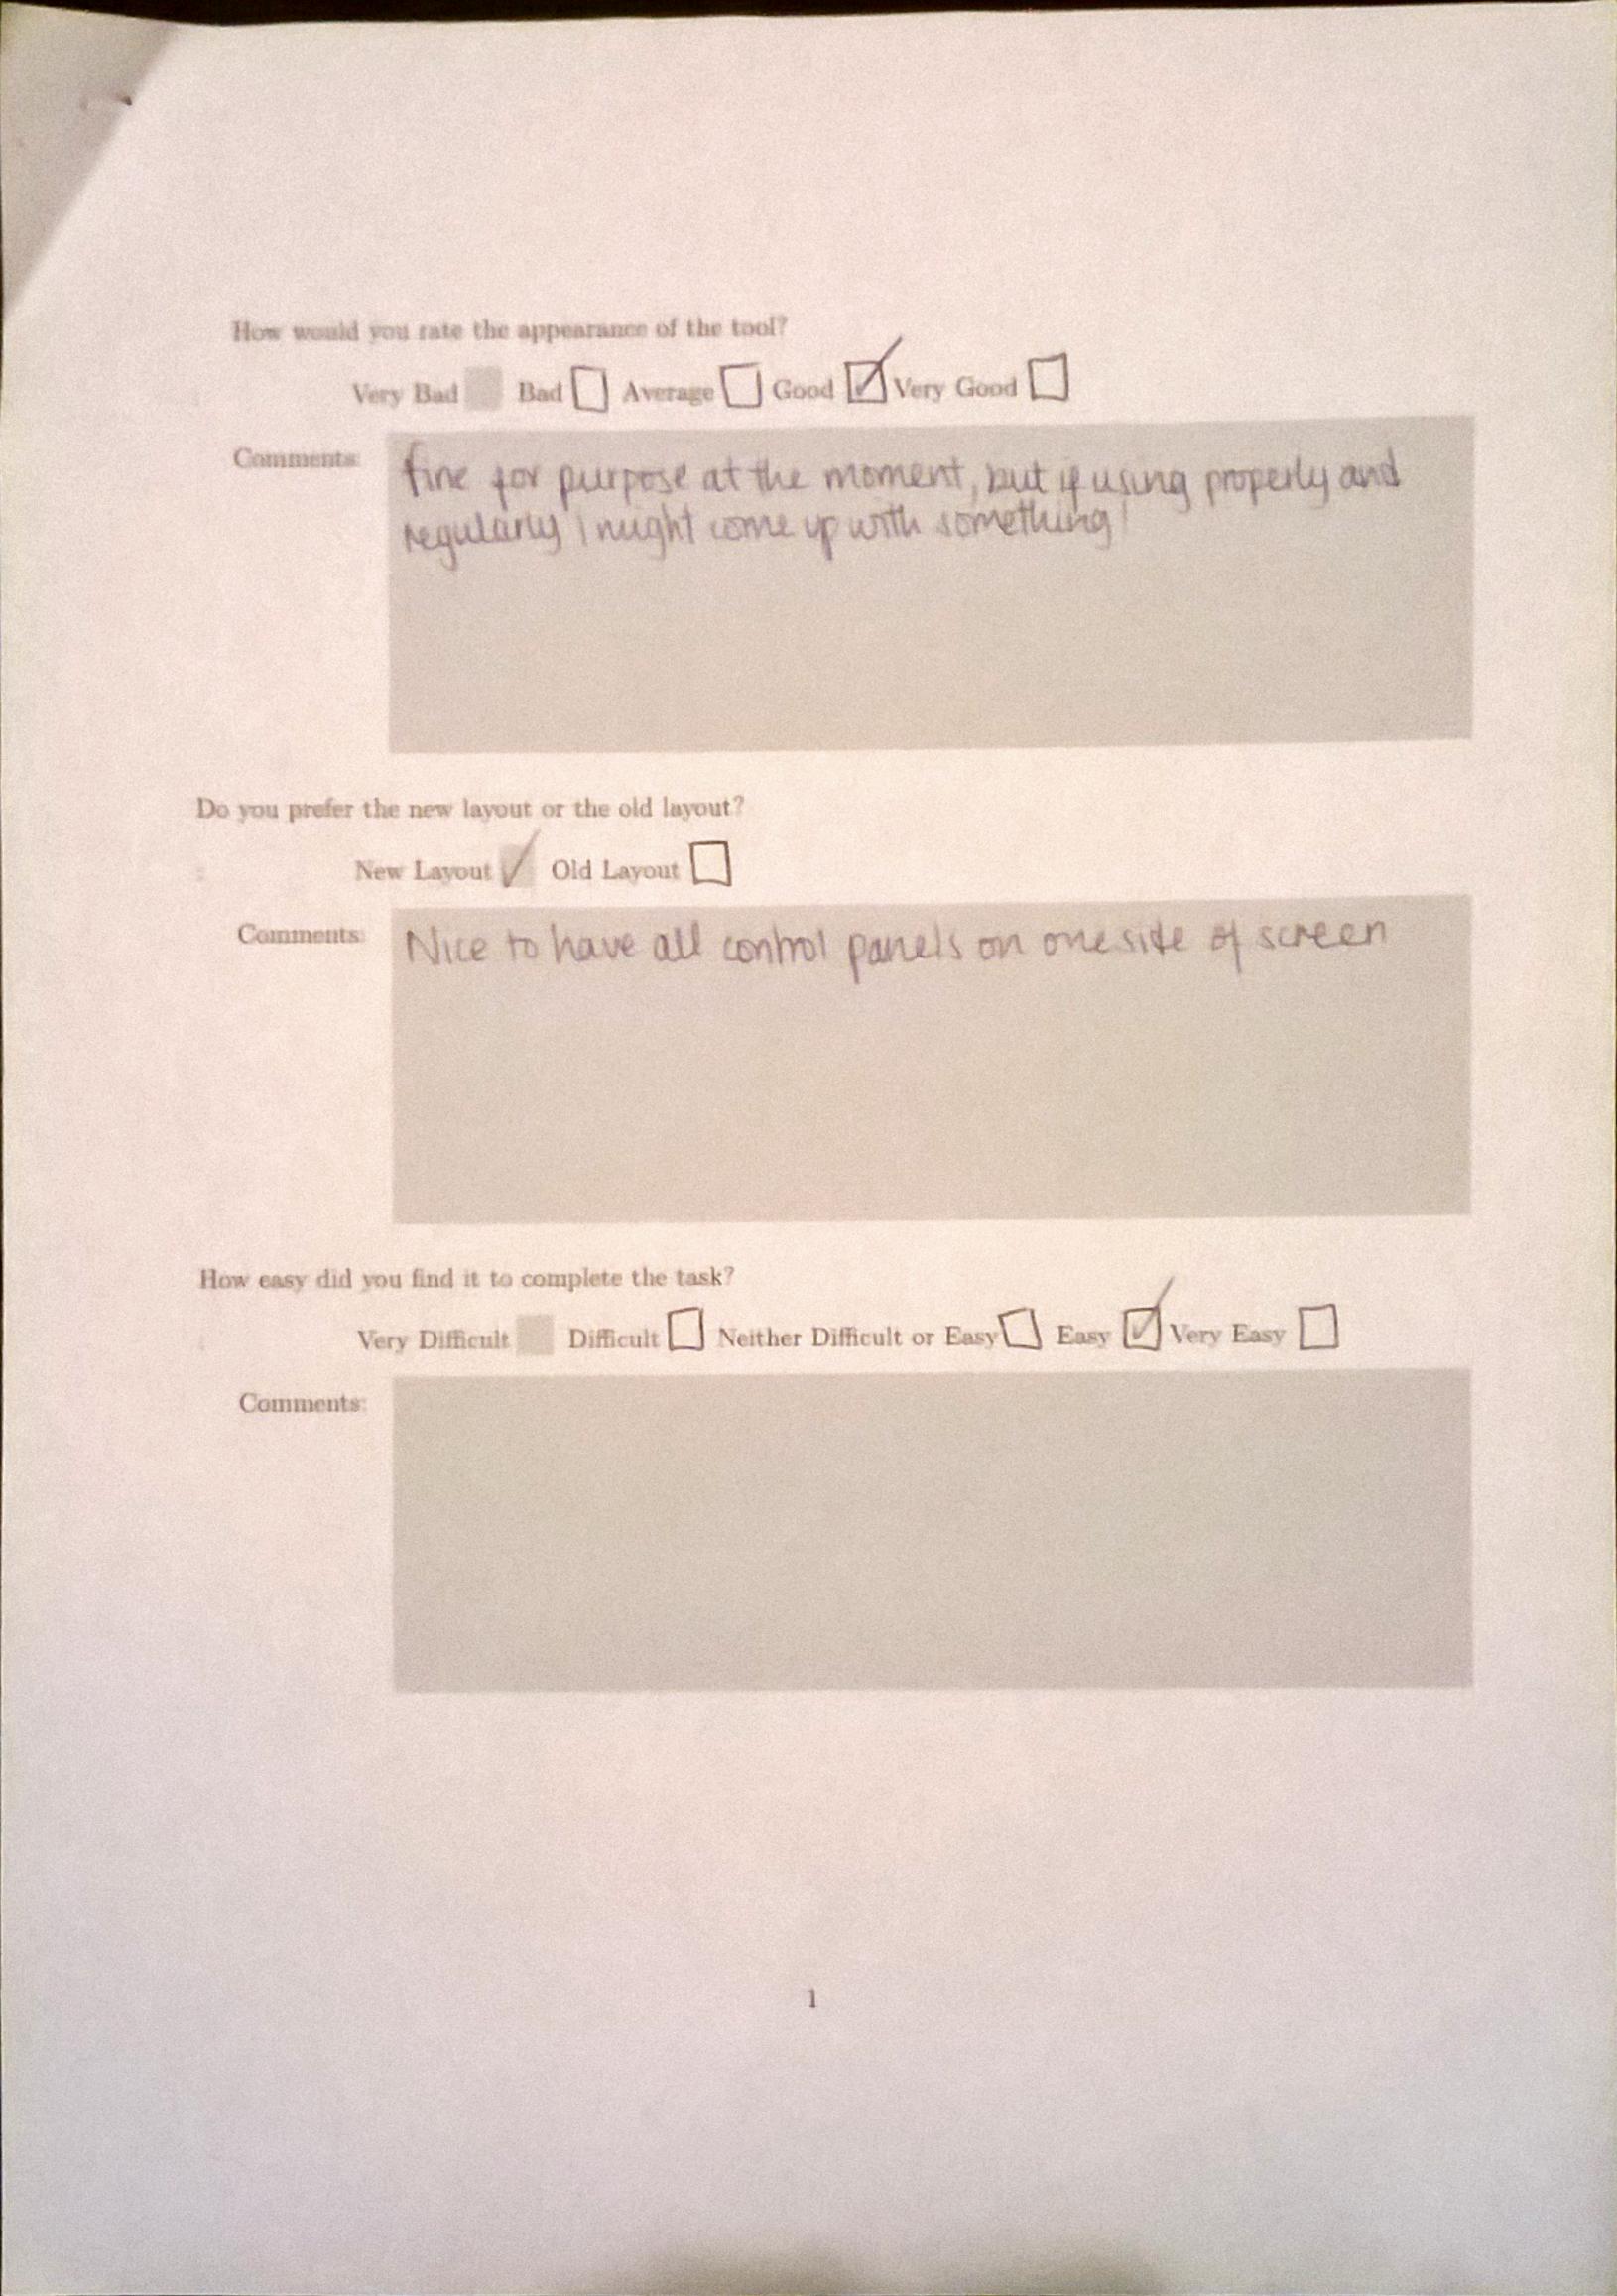 How would you rate the appearance of the tool?
Very Bad Bad Average Good Very Good
Comments:
fine for purpose at the moment, but if using properly and
regularly I might come up with something!
Do you prefer the new layout or the old layout?
New Layout Old Layout
Comments:
Nice to have all control panels on one side of screen
How easy did you find it to complete the task?
Very Difficult Difficult Neither Difficult or Easy Easy Very Easy
Comments:
1